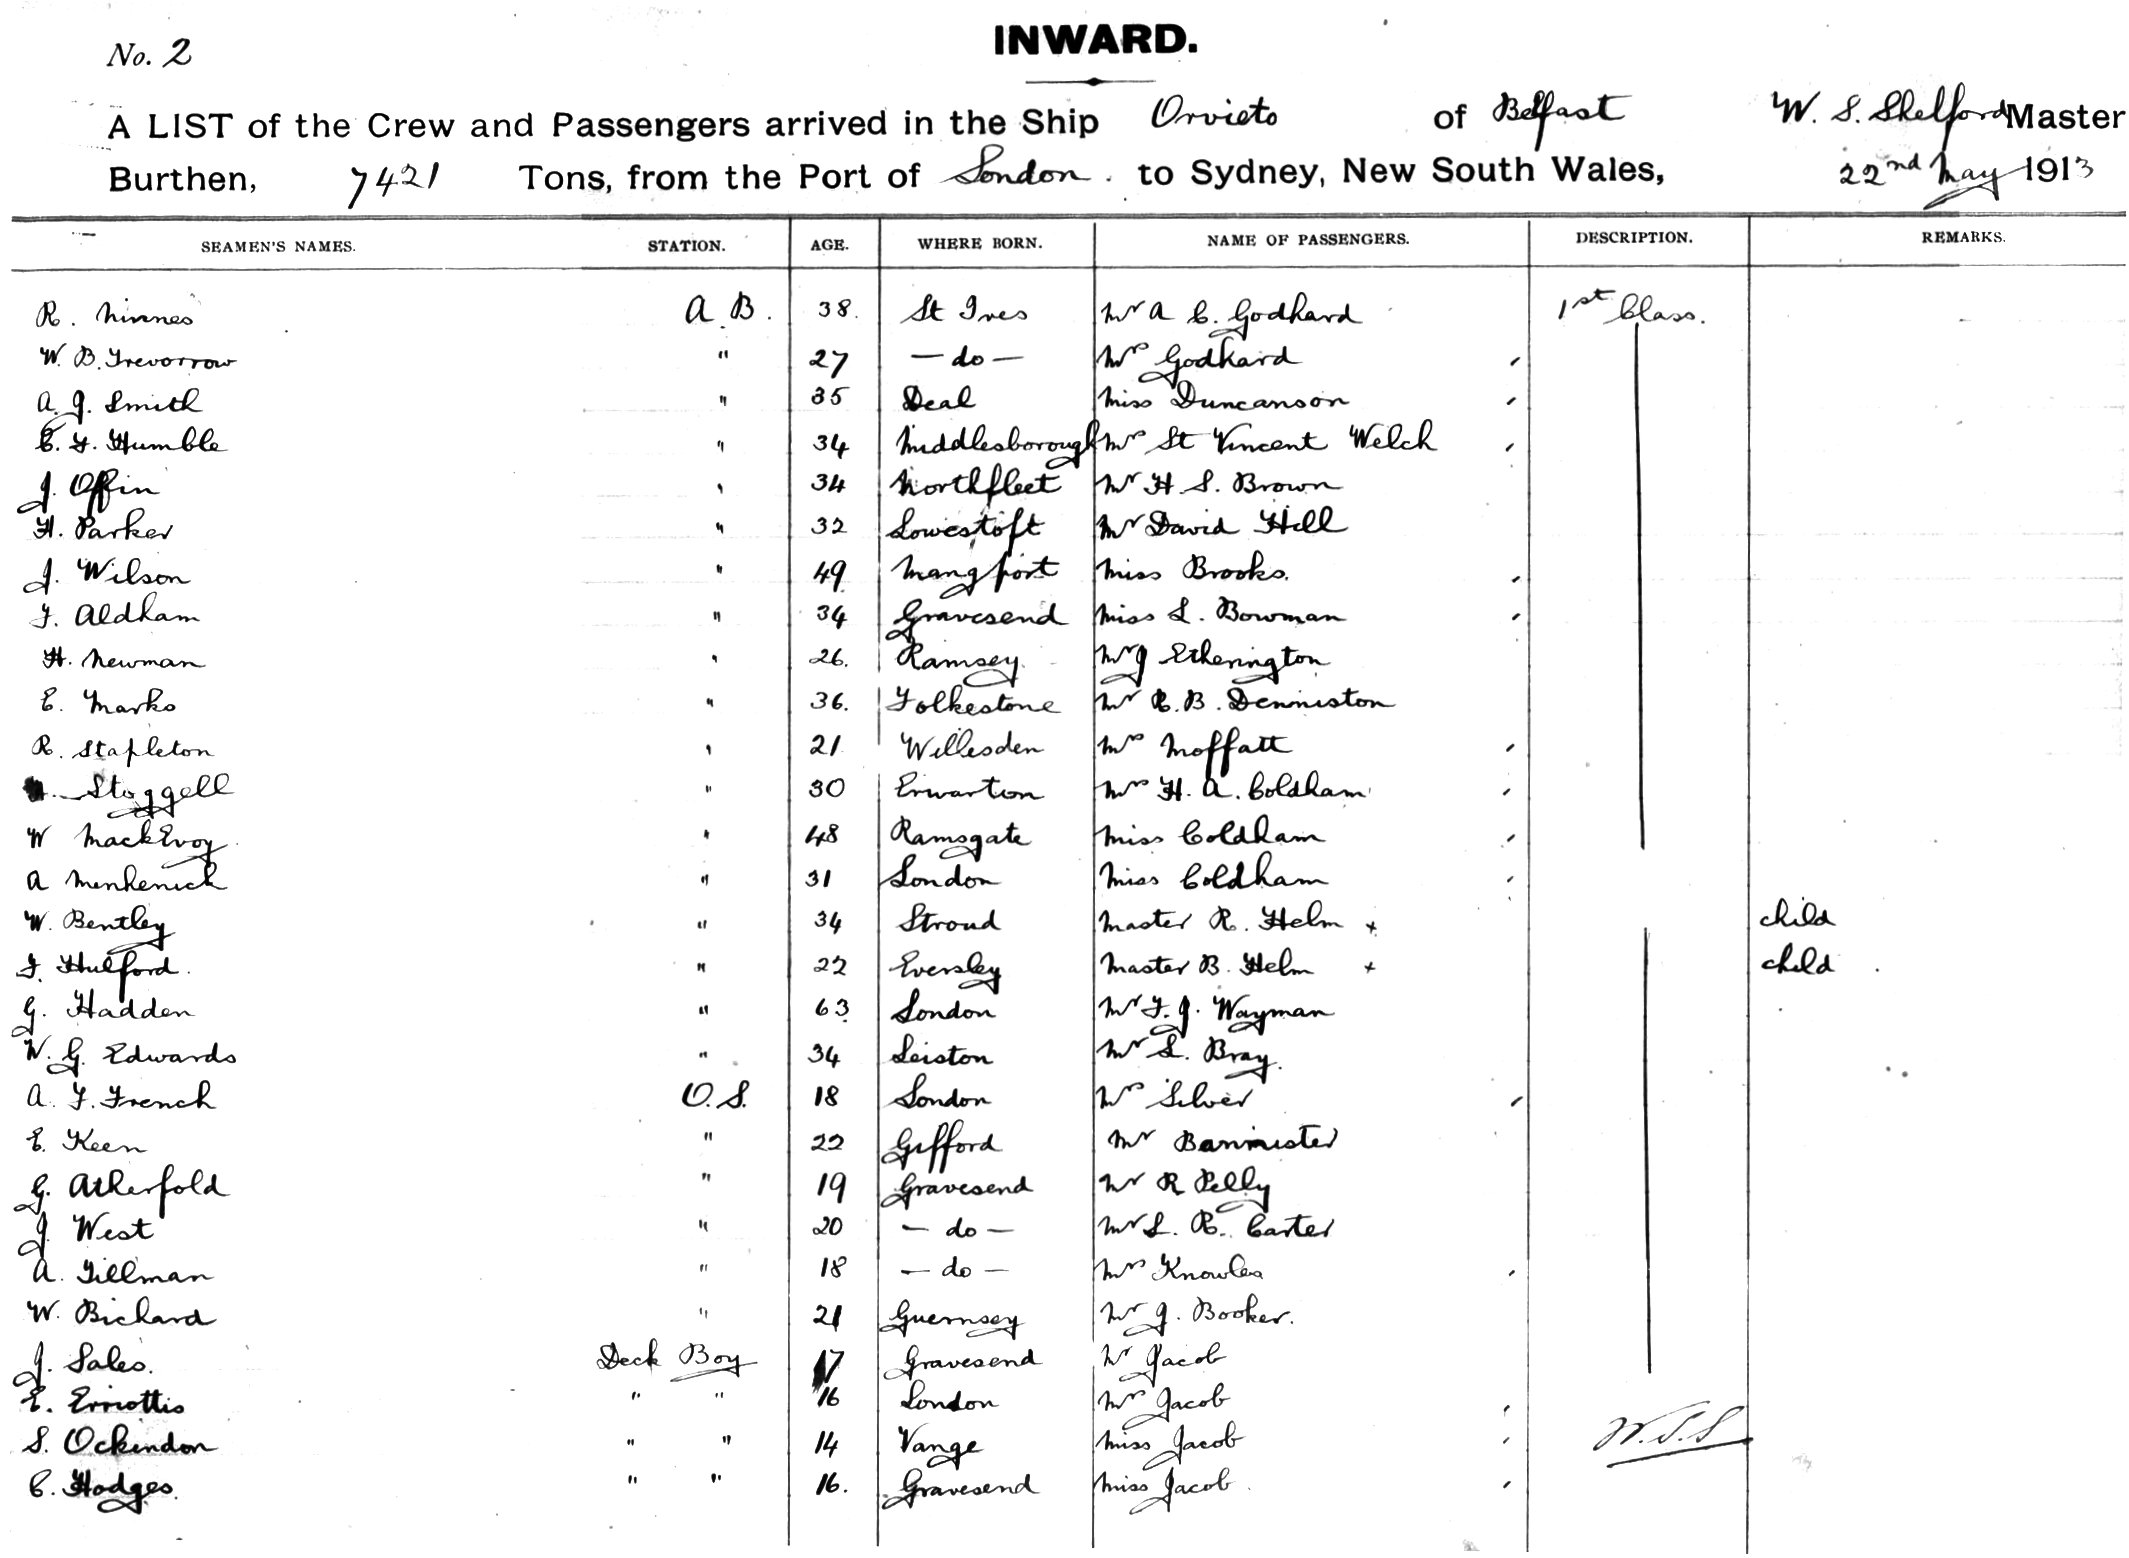 No. 2
INWARD.
A LIST of the Crew and Passengers arrived in the Ship Orvieto of Belfast W. S. Shelford Master
Burthen, 7421 Tons, from the Port of London. to Sydney, New South Wales, 22nd May 1913
SEAMEN'S NAMES. STATION. AGE. WHERE BORN. NAME OF PASSENGERS. DESCRIPTION. REMARKS.
R. Ninnes A.B. 38. St Ives Mr A C. Godhard 1st Class.
W. B. Trevorrow " 27 — do — Mrs Godhard
A. J. Smith " 35 Deal Miss Duncanson
C. F. Humble " 34 Middlesborough Mrs St Vincent Welch
J. Offin " 34 Northfleet Mr H. S. Brown
H. Parker " 32 Lowestoft Mr David Hill
J. Wilson " 49 Miss Brooks.
F. Aldham " 34 Gravesend Miss L. Bowman
H. Newman " 26. Ramsey Mr J Etherington
E. Marks " 36. Folkestone Mr R. B. Denniston
R. Stapleton " 21 Willesden Mrs Moffatt
Stoggell " 30 Erwarton Mrs H. A. Coldham
W MackEvoy " 48 Ramsgate Miss Coldham
A Menhenick " 31 London Miss Coldham
W. Bentley " 34 Stroud Master R. Helm + child
F. Hulford. " 22 Eversley Master B. Helm + child
G. Hadden " 63 London Mr F. J. Wayman
W. G. Edwards " 34 Leiston Mr L. Bray.
A. F. French O.S. 18 London Mrs Silver
E. Keen " 22 Gifford Mr Bannister
G. Atherfold " 19 Gravesend Mr R Pelly
J. West " 20 — do — Mr L. R. Carter
A. Tillman " 18 — do — Mrs Knowles
W. Bichard " 21 Guernsey Mr J. Booker.
J. Sales. Deck Boy 17 Gravesend Mr Jacob
E. " " 16 London Mrs Jacob
S. Ockendon " " 14 Vange Miss Jacob W.S.S
C. Hodges. " " 16. Gravesend Miss Jacob